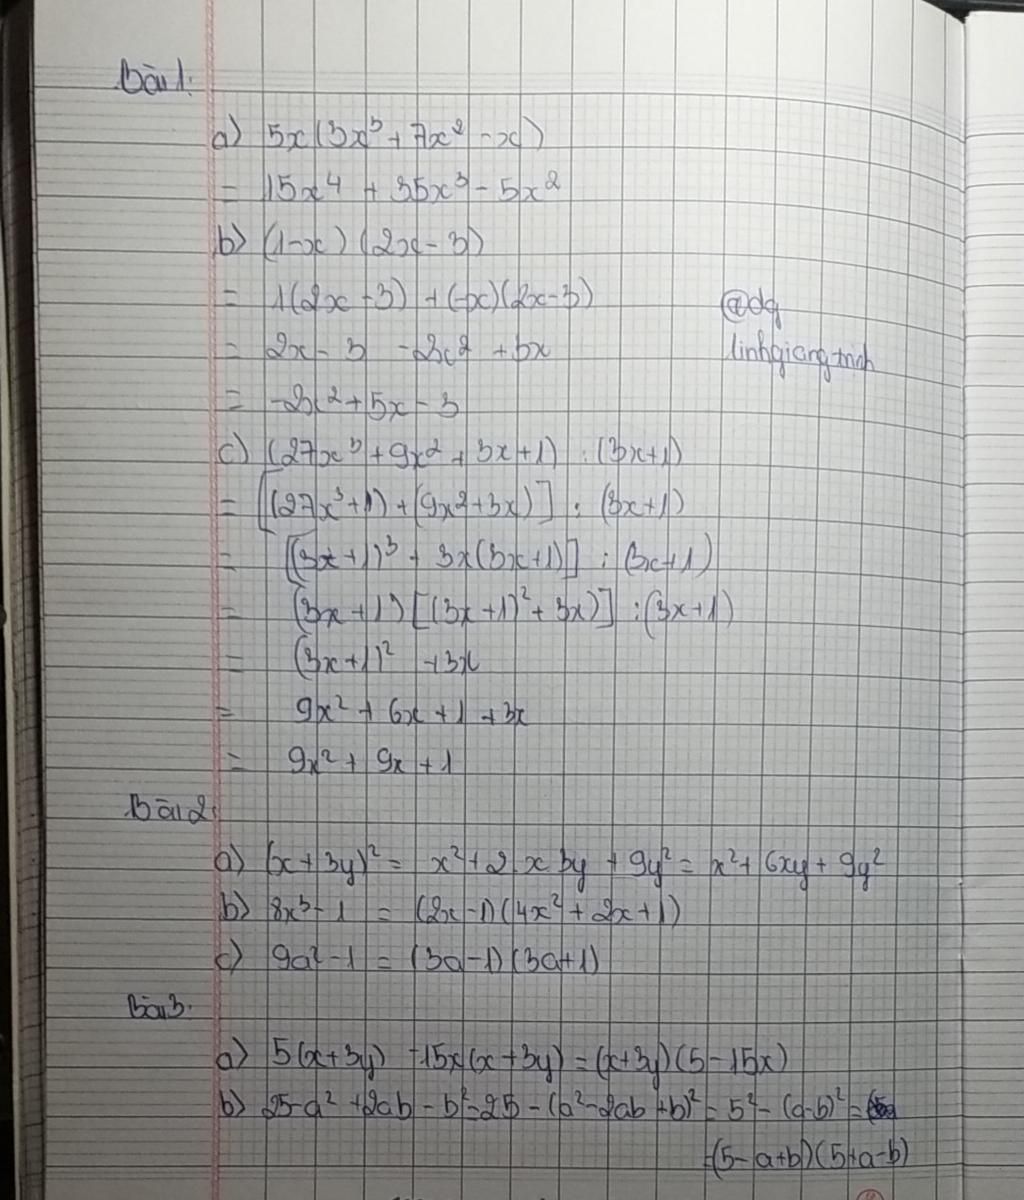 Bài 1:
a) 5x(3x³ + 7x² - x)
= 15x⁴ + 35x³ - 5x²
b) (1-x) (2x - 3)
= 1(2x - 3) + (-x)(2x-3)
= 2x - 3 - 2x² + 3x
= -2x² + 5x - 3
@dq
linhgiang trinh
c) (27x³ + 9x² + 3x + 1) : (3x+1)
= [(27x³+1) + (9x²+3x)] : (3x+1)
= [(3x+1)³ + 3x(3x+1)] : (3x+1)
= (3x+1) [(3x+1)² + 3x)] : (3x+1)
= (3x+1)² + 3x
= 9x² + 6x + 1 + 3x
= 9x² + 9x + 1
Bài 2:
a) (x + 3y)² = x² + 2.x 3y + 9y² = x² + 6xy + 9y²
b) 8x³ - 1 = (2x - 1)(4x² + 2x + 1)
c) 9a² - 1 = (3a - 1)(3a+1)
Bài 3:
a) 5(x+3y) - 15x(x + 3y) = (x+3y)(5 - 15x)
b) 25 - a² + 2ab - b² = 25 - (a² - 2ab + b)² = 5² - (a-b)² =
=(5 - a+b)(5+a-b)